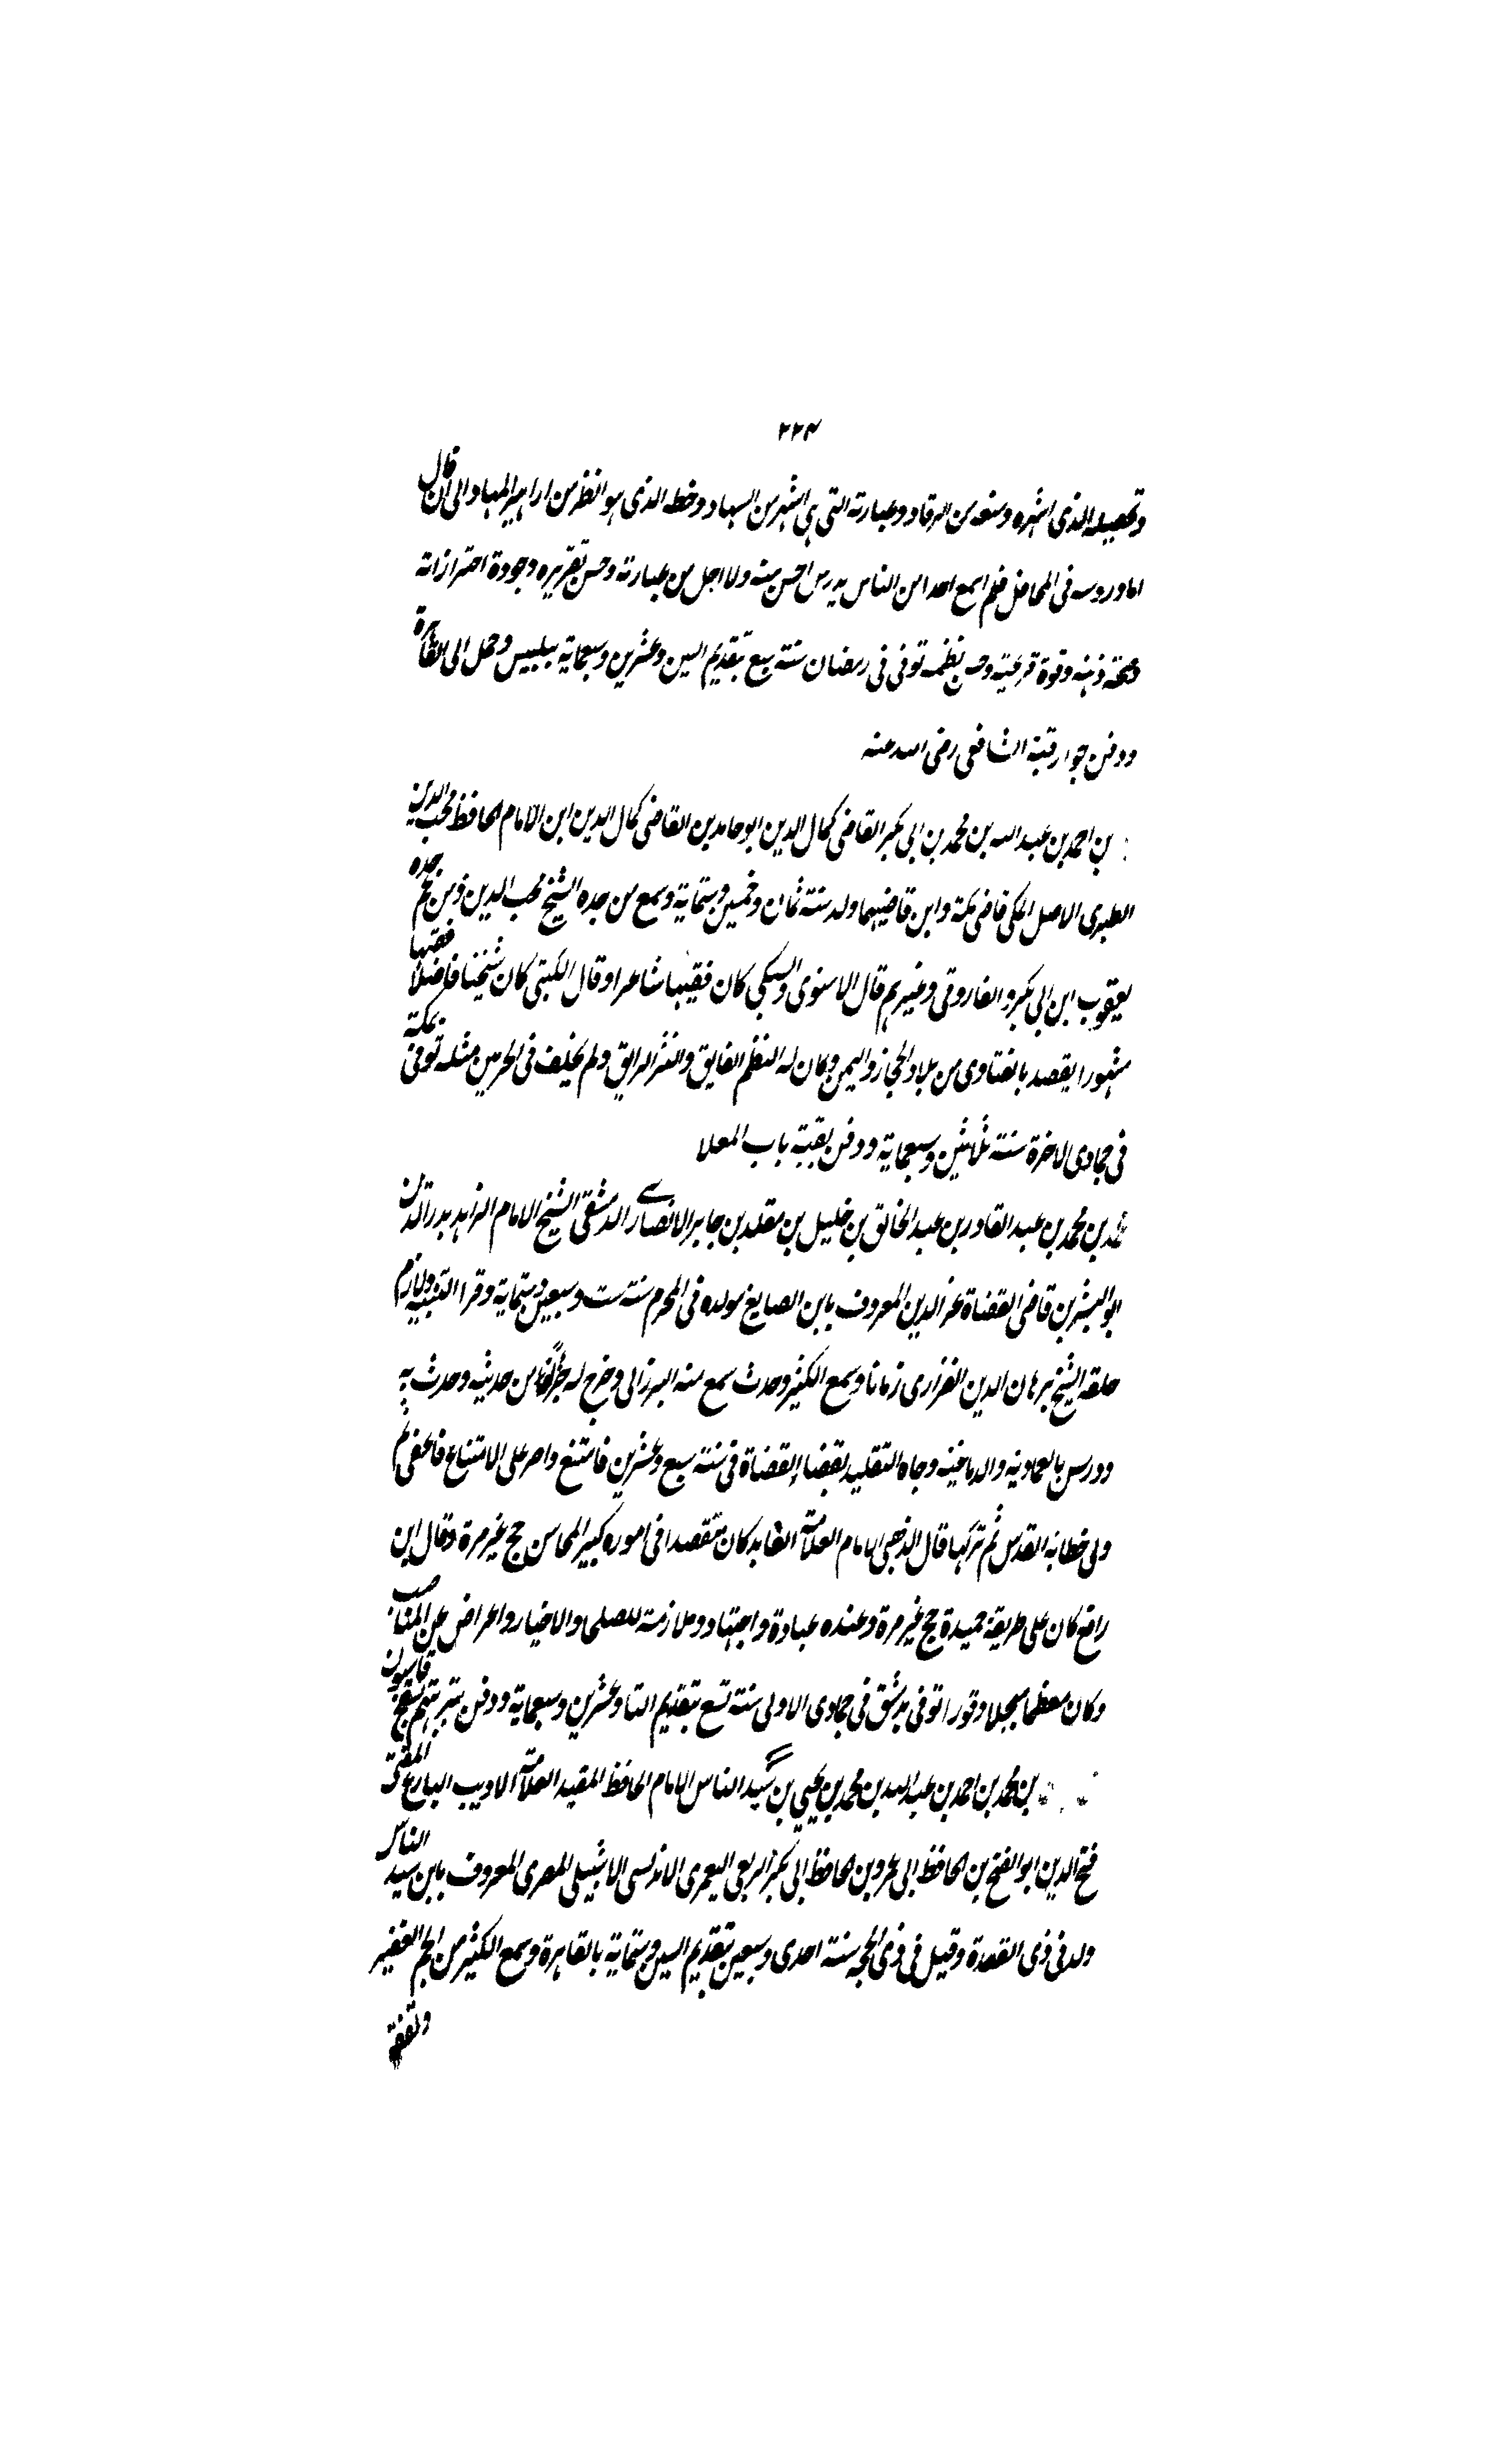 ٢٢٣
وتحصيله الذى اشهره ومنعه من الرقاد وعبارته التى هى اشهر من السهاد وخطه الذى هو انظر من ازاهير المهاد الى ان قال
اما دروسه فى المحافل فلم اسمع احدا من الناس يدرس احسن منه ولا اجل من عبارته وحسن تقريره وجودة احترازاته
وصحة ذهنه وقوة قريحته وحسن نظمه توفى فى رمضان سنة سبع بتقديم السين وعشرين وسبعماية ببلبيس وحمل الى القاهرة
ودفن جوار قبة الشافعى رضى الله عنه
بن احمد بن عبد الله بن محمد بن ابى بكر القاضى كمال الدين ابو حامد بن القاضى كمال الدين ابن الامام الحافظ محب الدين
الطبرى الاصل المكى قاضى مكة وابن قاضيها ولد سنة ثمان وخمسين وستماية وسمع من جده الشيخ محب الدين ومن عم جده
يعقوب ابن ابى بكر والفاروثى وغيرهم قال الاسنوى والسبكى كان فقيها شاعرا وقال الكتبى كان شيخنا فاضلا فقيها
مشهورا يقصد بالفتاوى من بلاد الحجاز واليمن وكان له النظم الفايق والنثر الرايق ولم يخلف فى الحرمين مثله توفى بمكة
فى جمادى الاخرة سنة ثلاثين وسبعماية ودفن بقبة باب المعلا
محمد بن محمد بن عبد القادر بن عبد الخالق بن خليل بن مقلد بن جابر الانصارى الدمشقى الشيخ الامام الزاهد بدر الدين
ابو اليسر بن قاضى القضاة عز الدين المعروف بابن الصايغ مولده فى المحرم سنة ست وسبعين وستماية وقرا التنبيه ولازم
حلقه الشيخ برهان الدين الفزارى زمانا وسمع الكثير وحدث سمع منه البرزالى وخرج له جزًا من حديثه وحدث به
ودرس بالعمادية والدماغية وجاه التقليد بقضا القضاة فى سنة سبع وعشرين فامتنع واصر على الامتناع فاعفى ثم
ولى خطابة القدس ثم تركها قال الذهبى الامام العلامة العابد كان مقتصدا فى اموره كبير المحاسن حج غير مرة وقال ابن
رافع كان على طريقة حميدة حج غير مرة وعنده عبادة واجتهاد وملازمة للصلحا والاخيار واعراض عن المناصب
وكان معظما مبجلا وقورا توفى بدمشق فى جمادى الاولى سنة تسع بتقديم التا وعشرين وسبعماية ودفن بتربتهم بسفح قاسيون
بن محمد بن احمد بن عبد الله بن محمد بن يحيى بن سيد الناس الامام الحافظ المفيد العلامة الاديب البارع المفنن
فتح الدين ابو الفتح بن الحافظ ابى عمرو بن الحافظ ابى بكر الربعى اليعمرى الاندلسى الاشبيلى المصرى المعروف بابن سيد الناس
ولد فى ذى القعدة وقيل فى ذى الحجه سنة احدى وسبعين بتقديم السين وستماية بالقاهرة وسمع الكثير من الجم الغفير
وتفقه